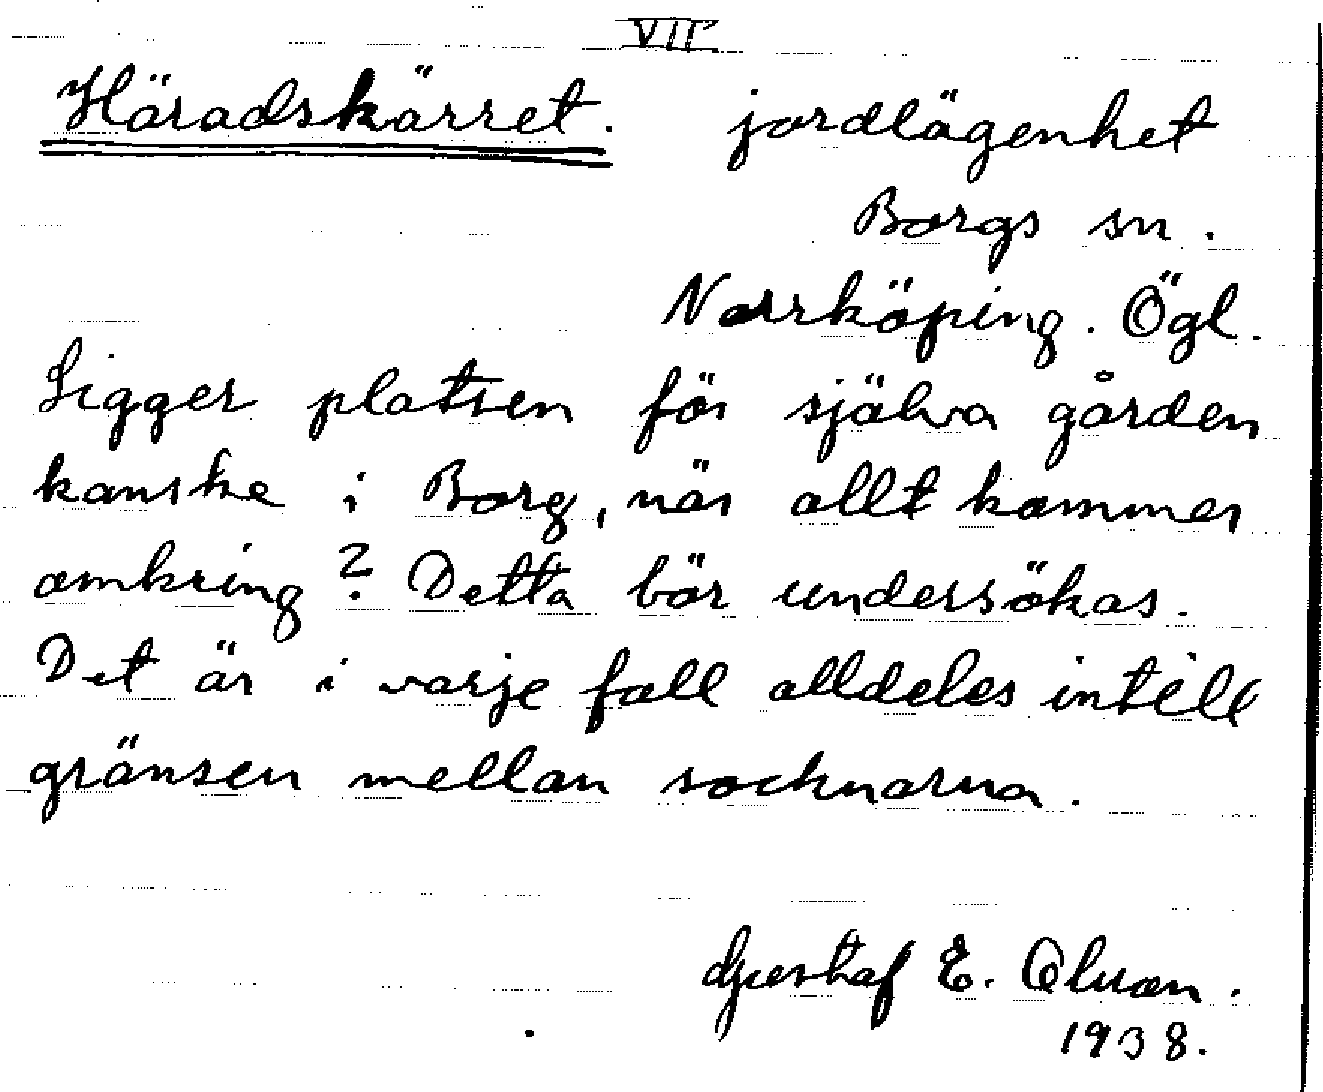 VII
Häradskärret. jordlägenhet
Borgs sn.
Norrköping. Ögl.
Ligger platsen för själva gården
kanske i Borg, när allt kommer
omkring? Detta bör undersökas.
Det är i varje fall alldeles intill
gränsen mellan socknarna.
Gustaf E. Olson.
1938.